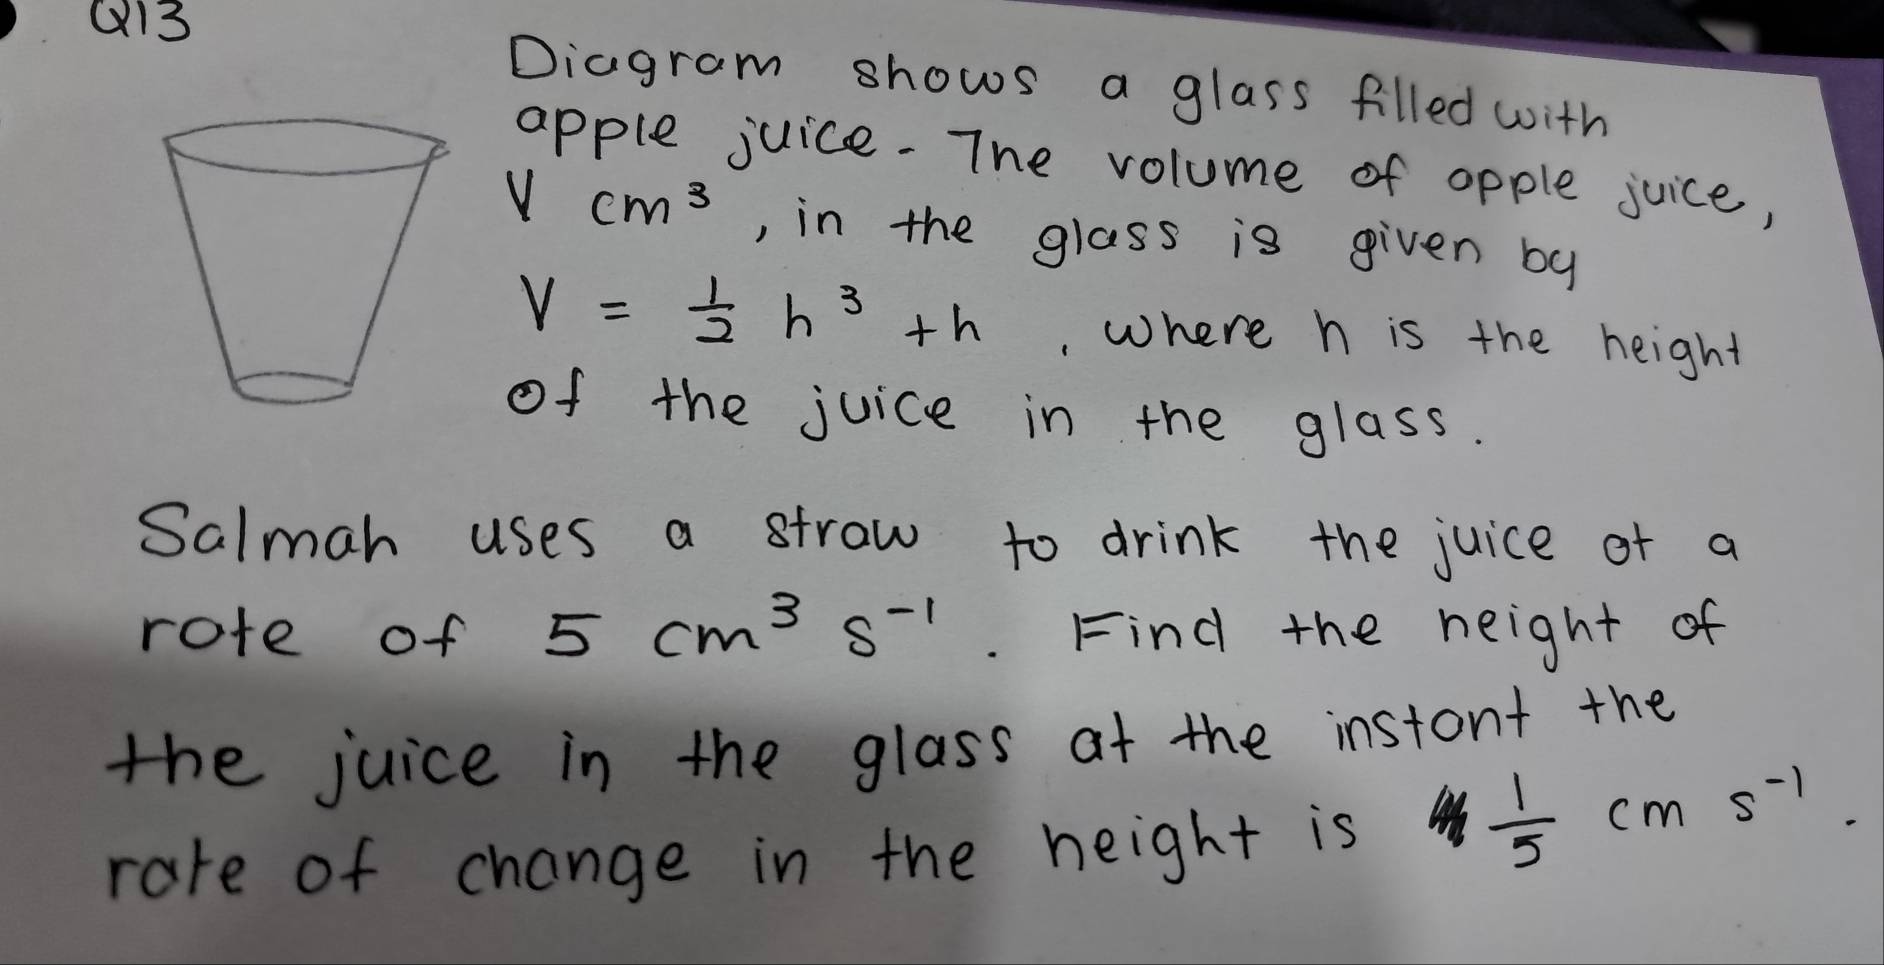 Q13
Diagram shows a glass filled with
apple juice. The volume of apple juice,
V cm³, in the glass is given by
V = 1/2 h³ + h, where h is the height
of the juice in the glass.
Salmah uses a straw to drink the juice at a
rate of 5 cm³ s⁻¹. Find the height of
the juice in the glass at the instant the
rate of change in the height is 1/5 cm s⁻¹.